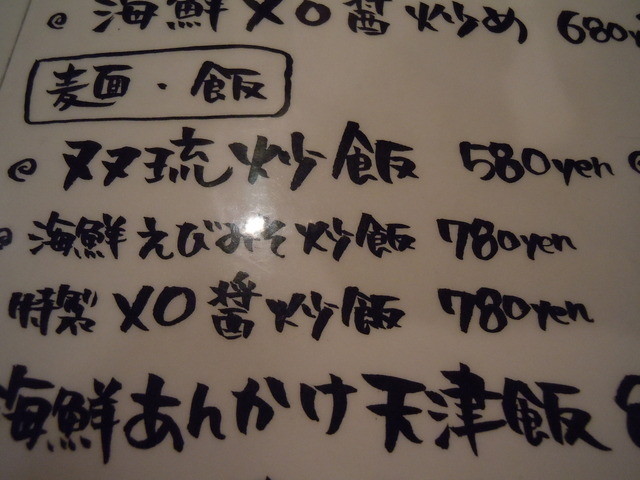 海鮮XO醤炒め 680y
麺・飯
双琉炒飯 580yen
海鮮えびみそ炒飯 780yen
特製XO醤炒飯 780yen
海鮮あんかけ天津飯